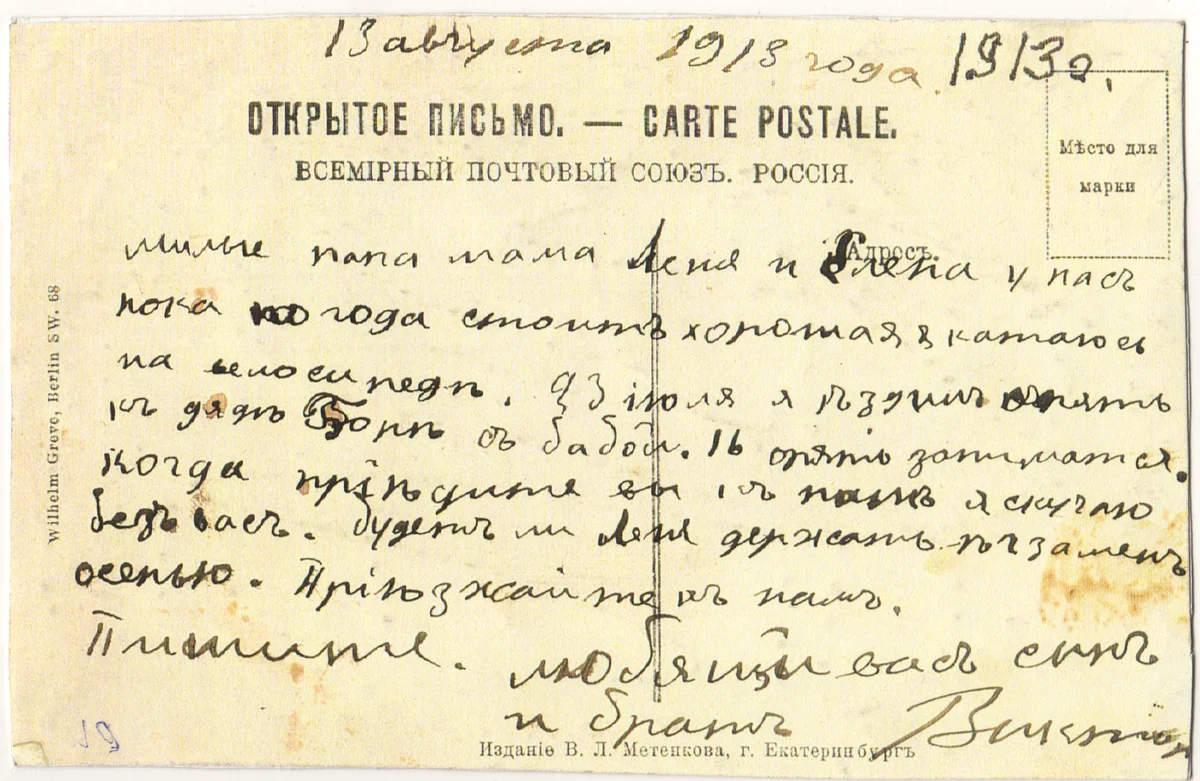 13 августа 1913 года. 1913 г.
ОТКРЫТОЕ ПИСЬМО. — CARTE POSTALE.
ВСЕМІРНЫЙ ПОЧТОВЫЙ СОЮЗЪ. РОССІЯ.
Мѣсто для
марки
Адресъ.
милые папа мама Леня и Елена у насъ
пока погода стоитъ хорошая я катаюсь
на велосипедѣ. 23 іюля я ѣздилъ опять
къ дядѣ Борѣ съ бабой. 16 опять заниматся.
когда пріѣдите вы къ намъ я скучаю
безъ васъ. будетъ ли Леня держать екзаменъ
осенью. Пріѣзжайте къ намъ.
Пишите. любящій васъ сынъ
и братъ Викторъ
Wilhelm Greve, Berlin SW. 68
19
Изданіе В. Л. Метенкова, г. Екатеринбургъ